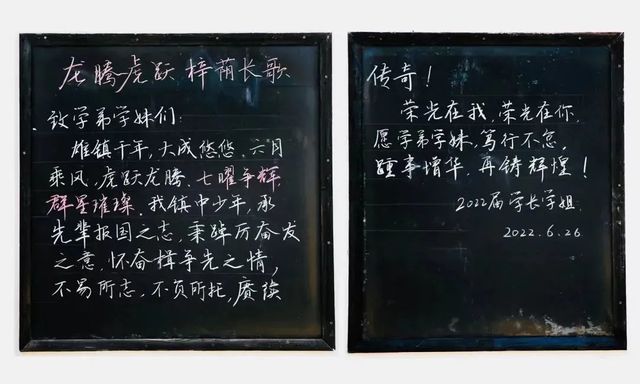 龙腾虎跃 梓荫长歌
致学弟学妹们:
雄镇千年,大成悠悠。六月
乘风,虎跃龙腾。七曜争辉,
群星璀璨。我镇中少年,承
先辈报国之志,秉踔厉奋发
之意,怀奋楫争先之情,
不易所志,不负所托,赓续
传奇!
荣光在我,荣光在你,
愿学弟学妹,笃行不怠,
踵事增华,再铸辉煌!
2022届学长学姐
2022.6.26